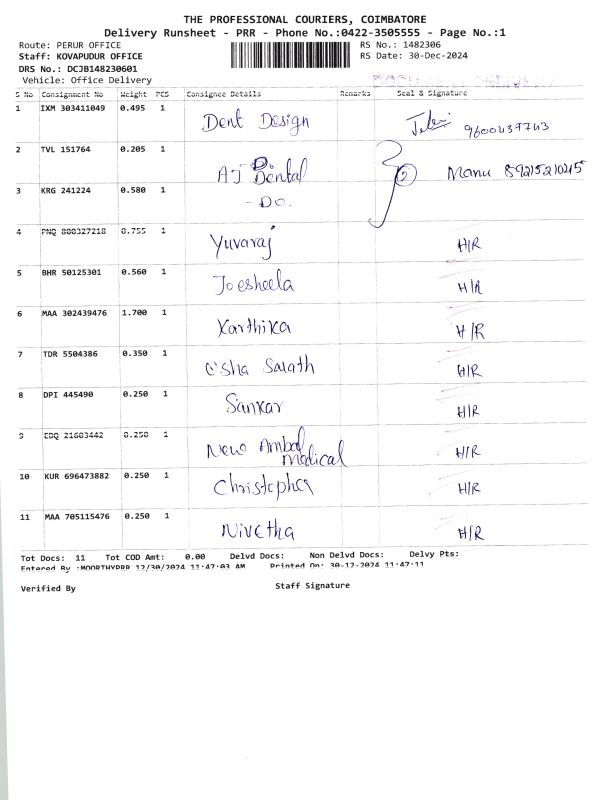 THE PROFESSIONAL COURIERS, COIMBATORE
Delivery Runsheet - PRR - Phone No.:0422-3505555 - Page No.:1
Route: PERUR OFFICE RS No.: 1482306
Staff: KOVAPUDUR OFFICE RS Date: 30-Dec-2024
DRS No.: DCJB148230601
Vehicle: Office Delivery
S No Consignment No Weight PCS Consignee Details Remarks Seal & Signature
1 IXM 303411049 0.495 1 Dent Design 9600437743
2 TVL 151764 0.205 1 AJ Dental 2 Manu 89215210215
3 KRG 241224 0.580 1 - Do.
4 PNQ 800327218 0.755 1 Yuvaraj H/R
5 BHR 50125301 0.560 1 Joesheela H/R
6 MAA 302439476 1.700 1 Karthika H/R
7 TDR 5504386 0.350 1 Usha Sarath H/R
8 DPI 445490 0.250 1 Sankar H/R
9 EDQ 21683442 0.250 1 New Ambal Medical H/R
10 KUR 696473882 0.250 1 Christopher H/R
11 MAA 705115476 0.250 1 Nivetha H/R
Tot Docs: 11 Tot COD Amt: 0.00 Delvd Docs: Non Delvd Docs: Delvy Pts:
Entered By :MOORTHYPRR 12/30/2024 11:47:03 AM Printed On: 30-12-2024 11:47:11
Verified By Staff Signature